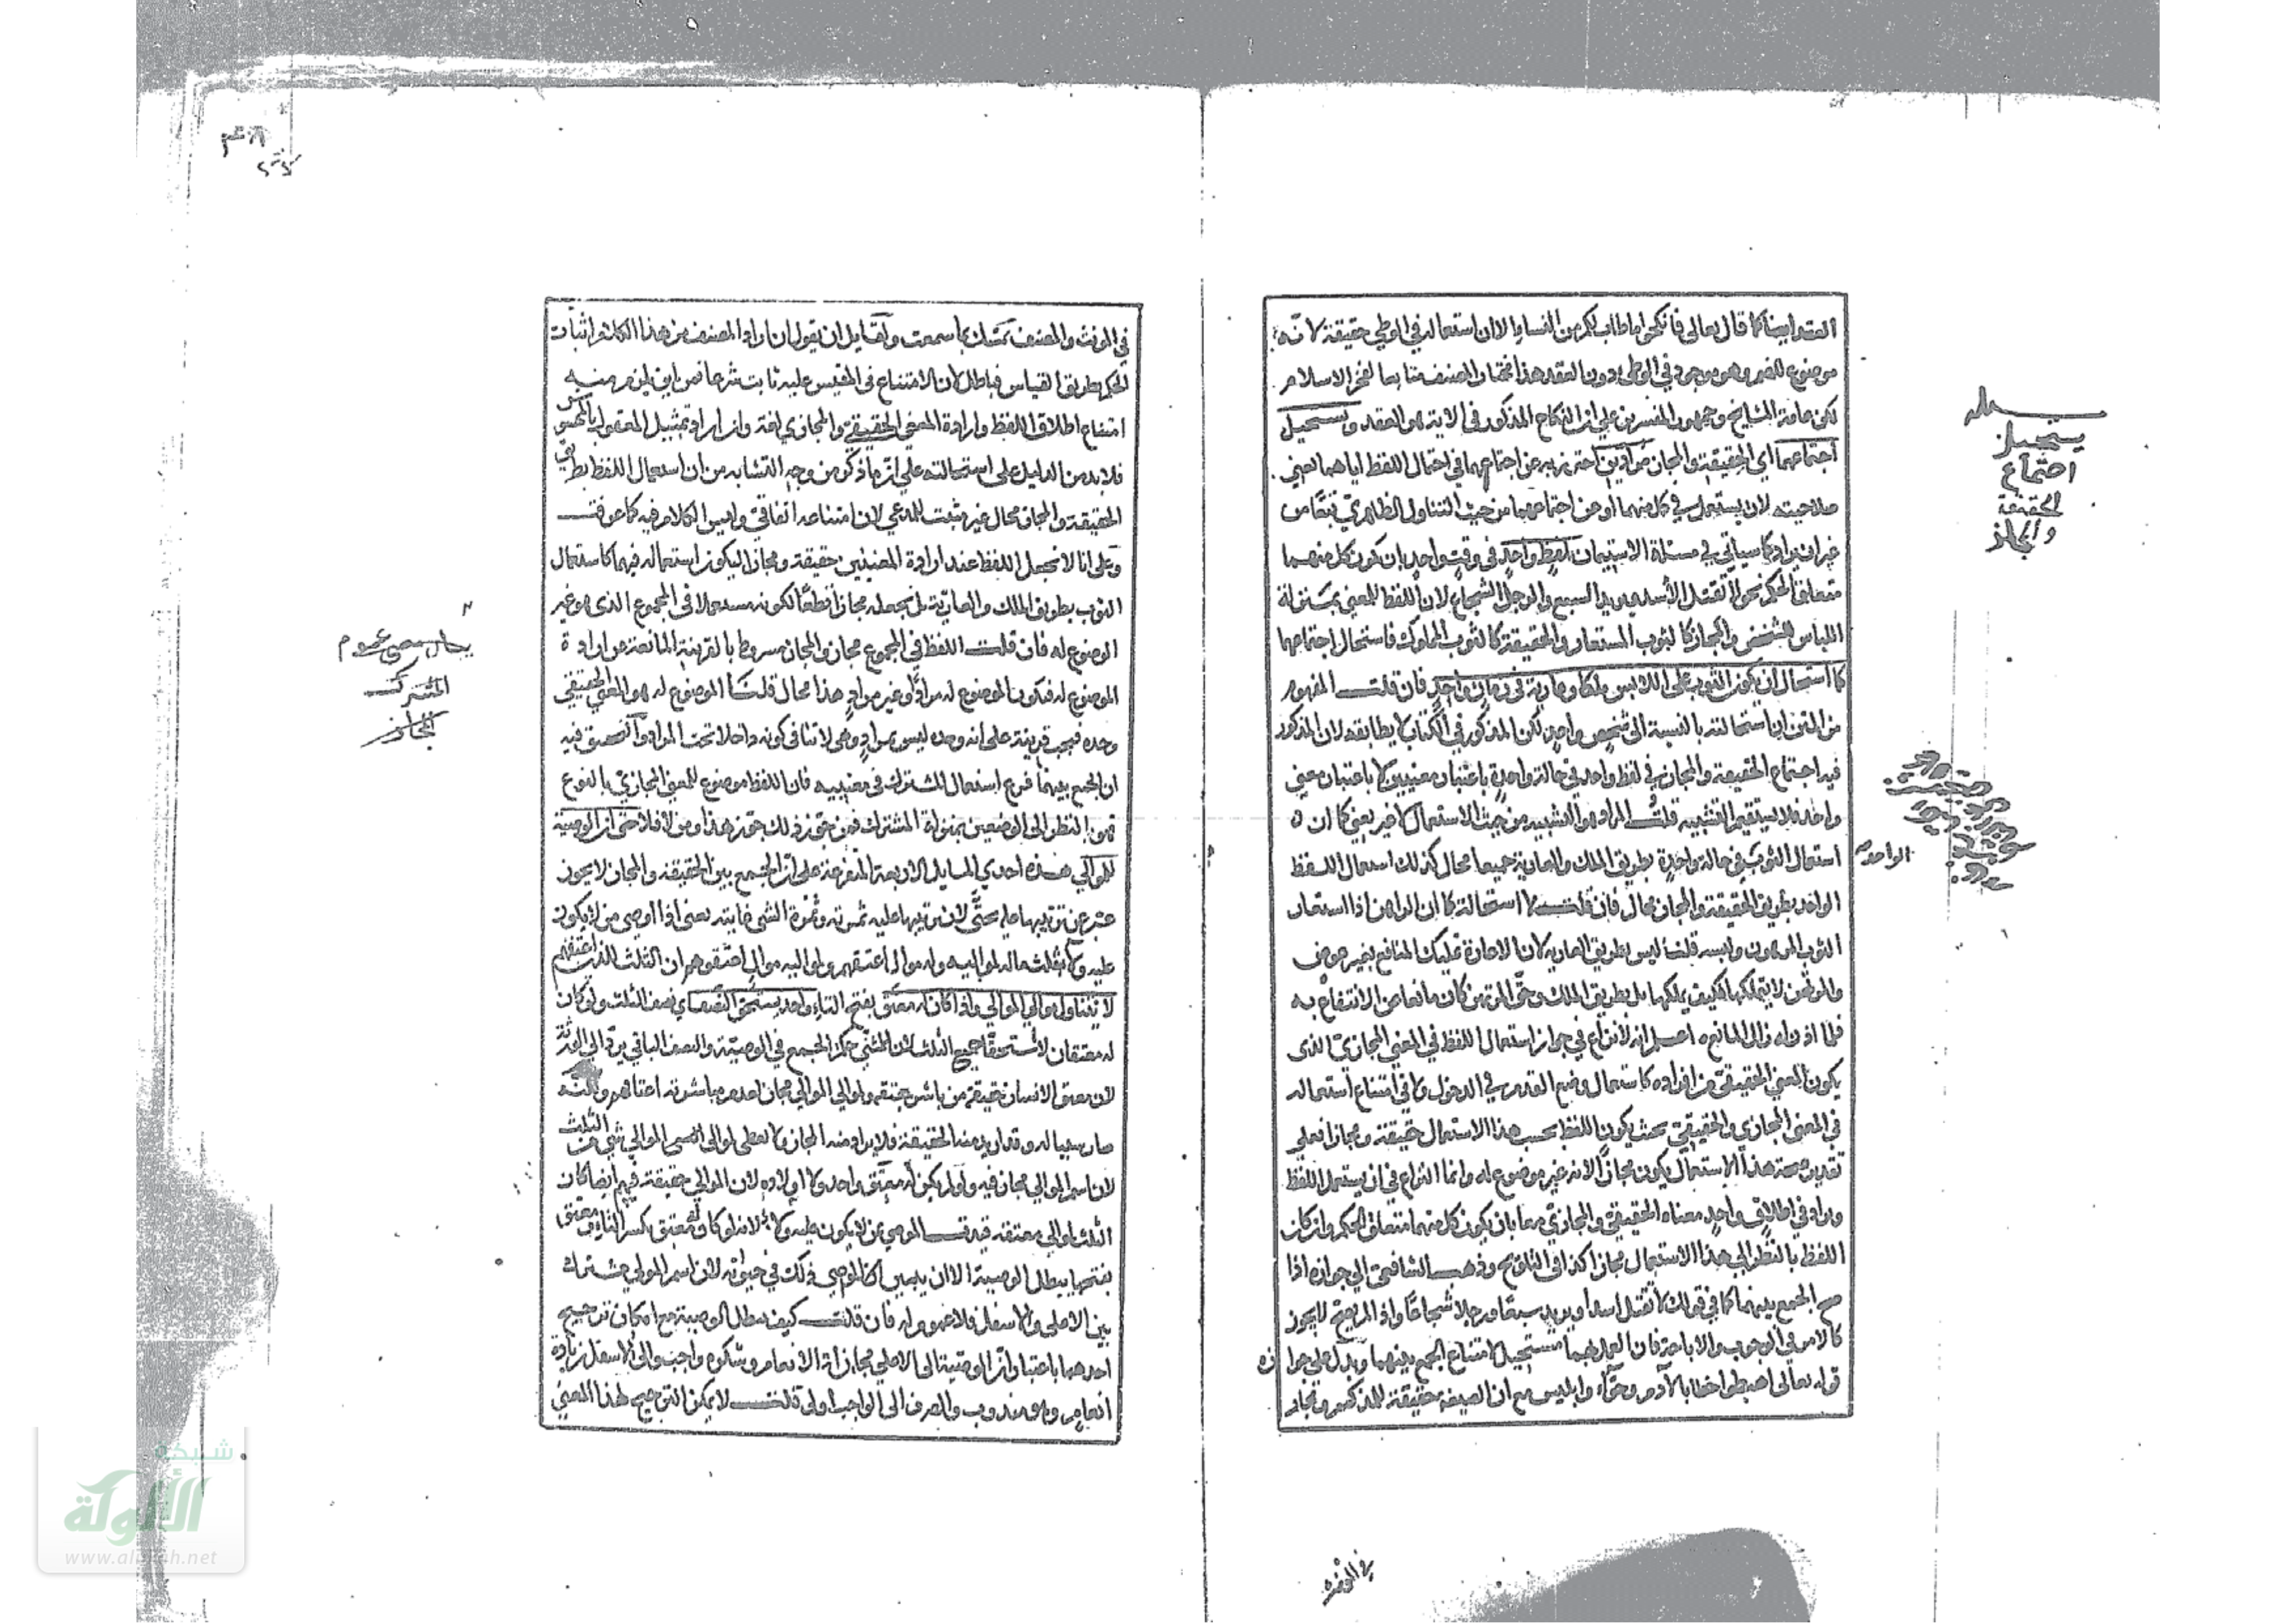 العقد ايضا كما قال تعالى فانكحوا ما طاب لكم من النساء الا ان استعماله في الوطي حقيقة لانه
موضوع للضم وهو موجود في الوطى دون العقد هذا مختار المصنف متابعا لفخر الاسلام
لكن عامة المشايخ وجمهور المفسرين على ان النكاح المذكور في الاية هو العقد ويستحيل
اجتماعهما اي الحقيقة والمجاز مرادين احترز به عن اجتماعهما في احتمال اللفظ اياهما يعني
صلاحيته لان يستعمل في كل منهما او عن اجتماعهما من حيث التناول الظاهري تبعا من
غير ان يراد كما سياتي في مسئلة الاستيمان بلفظ واحد في وقت واحد بان يكون كل منهما
متعلق الحكم نحو لا تقتل الاسد ويريد السبع والرجل الشجاع لان اللفظ للمعنى بمنزلة
اللباس للشخص والمجاز كالثوب المستعار والحقيقة كالثوب المملوك فاستحال اجتماعهما
كما استحال ان يكون الثوب على اللابس ملكا وعارية في زمان واحد فان قلت المفهوم
من المتن ان استحالته بالنسبة الى شخص واحد لكن المذكور في الكتاب لا يطابقه لان المذكور
فيه اجتماع الحقيقة والمجاز في لفظ واحد في حالة واحدة باعتبار معنيين لا باعتبار معنى
واحد فلا يستقيم التشبيه قلت المراد هو التشبيه من حيث الاستعمال لا غير يعني كما ان
استعمال الثوب في حالة واحدة بطريق الملك والعارية جميعا محال كذلك استعمال اللفظ
الواحد
الواحد بطريق الحقيقة والمجاز محال فان قلت لا استحالة كما ان الراهن اذا استعار
الثوب المرهون ولبسه قلنا ليس بطريق العارية لان الاعارة تمليك المنافع بغير عوض
والمرتهن لا يتملكها فكيف يملكها بل بطريق الملك وحق المرتهن كان مانعا من الانتفاع به
فلما اذن له زال المانع اعلم انه لا نزاع في جواز استعمال اللفظ في المعنى المجازي الذى
يكون المعنى الحقيقي من افراده كاستعمال وضع القدم في الدخول ولا في امتناع استعماله
في المعنى المجازي والحقيقي بحيث يكون اللفظ بحسب هذا الاستعمال حقيقة ومجازا فعلى
تقدير صحة هذا الاستعمال يكون مجازا لانه غير موضوع له وانما النزاع في ان يستعمل اللفظ
ويراد في اطلاق واحد معناه الحقيقي والمجازي معا بان يكون كل منهما متعلق الحكم وان كان
اللفظ بالنظر الى هذا الاستعمال مجازا كذا في التلويح وذهب الشافعي الى جوازه اذا
صح الجمع بينهما كما في قولك لا تقتل اسدا ويريد سبعا ورجلا شجاعا واذا لم يصح لا يجوز
كالامر في الوجوب والاباحة فان العمل بهما مستحيل لامتناع الجمع بينهما ويدل على جوازه
قوله تعالى اهبطوا خطابا لآدم وحواء وابليس مع ان الصيغة حقيقة للمذكور ومجاز
يستحيل
اجتماع
الحقيقة
والمجاز
في المونث والمصنف تمسك بما سمعت ولقايل ان يقول ان اراد المصنف من هذا الكلام اثبات
الحكم بطريق القياس فباطل لان الامتناع في المقيس عليه ثابت شرعا فمن اين يلزم منه
امتناع اطلاق اللفظ وارادة المعنى الحقيقي والمجازي لغة وان اراد تمثيل المعقول بالمحسوس
فلا بد من الدليل على استحالته على ان ما ذكر من وجه التشابه من ان استعمال اللفظ بطريق
الحقيقة والمجاز محال غير مثبت للمدعي لان امتناعه اتفاقي وليس الكلام فيه كما عرفت
وعلى انا لا نجعل اللفظ عند ارادة المعنيين حقيقة ومجازا ليكون استعماله فيهما كاستعمال
الثوب بطريق الملك والعارية بل نجعله مجازا قطعا لكونه مستعملا في المجموع الذى هو غير
الموضوع له فان قلت اللفظ في المجموع مجاز والمجاز مشروط بالقرينة المانعة عن ارادة
الموضوع له فيكون الموضوع له مرادا وغير مراد هذا محال قلنا الموضوع له هو المعنى الحقيقي
وحده فيجب قرينة على انه وحده ليس بمراد وهى لا تنافى كونه داخلا تحت المراد والتحقيق فيه
ان الجمع بينهما فرع استعمال المشترك في معنييه فان اللفظ موضوع للمعنى المجازي بالنوع
فهو بالنظر الى الوضعين بمنزلة المشترك فمن جوز ذلك جوز هذا ومن لا فلا حتى ان الوصية
للموالي هذه احدى المسايل الاربعة المتفرعة على ان الجمع بين الحقيقة والمجاز لا يجوز
عبر عن ترتيبها عليه بحتى لان ترتيبها عليه ثمرته وثمرة الشي غايته يعنى اذا اوصى من لا يكون
عليه ولاء بثلث ماله لمواليه وله موال اعتقهم ولمواليه موال اعتقوهم ان الثلث للذين اعتقهم
لا تتناول موالي الموالي واذا كان له معتق بفتح التاء واحد يستحق النصف اي نصف الثلث ولو كان
له معتقان لاستحقا جميع الثلث لان للمثنى حكم الجمع في الوصية والنصف الباقي يرد الى الورثة
لان معتق الانسان حقيقة من باشر عتقه وموالي الموالي مجاز لعدم مباشرته اعتاقهم ولكنه
صار سببا له وقد اريد منه الحقيقة فلا يراد منه المجاز ولا يعطى لموالى الموالي شي من الثلث
لان اسم الموالي مجاز فيه ولو لم يكن له معتق واحد ولا اولاده لان الموالي حقيقة فيهم ايضا كان
الثلث لموالى معتقه قيدت الموصي بمن لا يكون عليه ولاء لانه لو كان له معتق بكسر التاء ومعتق
بفتحها يبطل الوصية الا ان يبين الموصي ذلك في حيوته لان اسم المولى مشترك
بين الاعلى والاسفل فلا عموم له فان قلت كيف يبطل الوصية مع امكان ترجيح
احدهما باعتبار ان الوصية الى الاعلى مجازاة الانعام وشكره واجب والى الاسفل زيادة
انعام وهو مندوب والصرف الى الواجب اولى قلت لا يمكن الترجيح لهذا المعنى
عموم
المشترك
شبكة
الألوكة
www.alukah.net